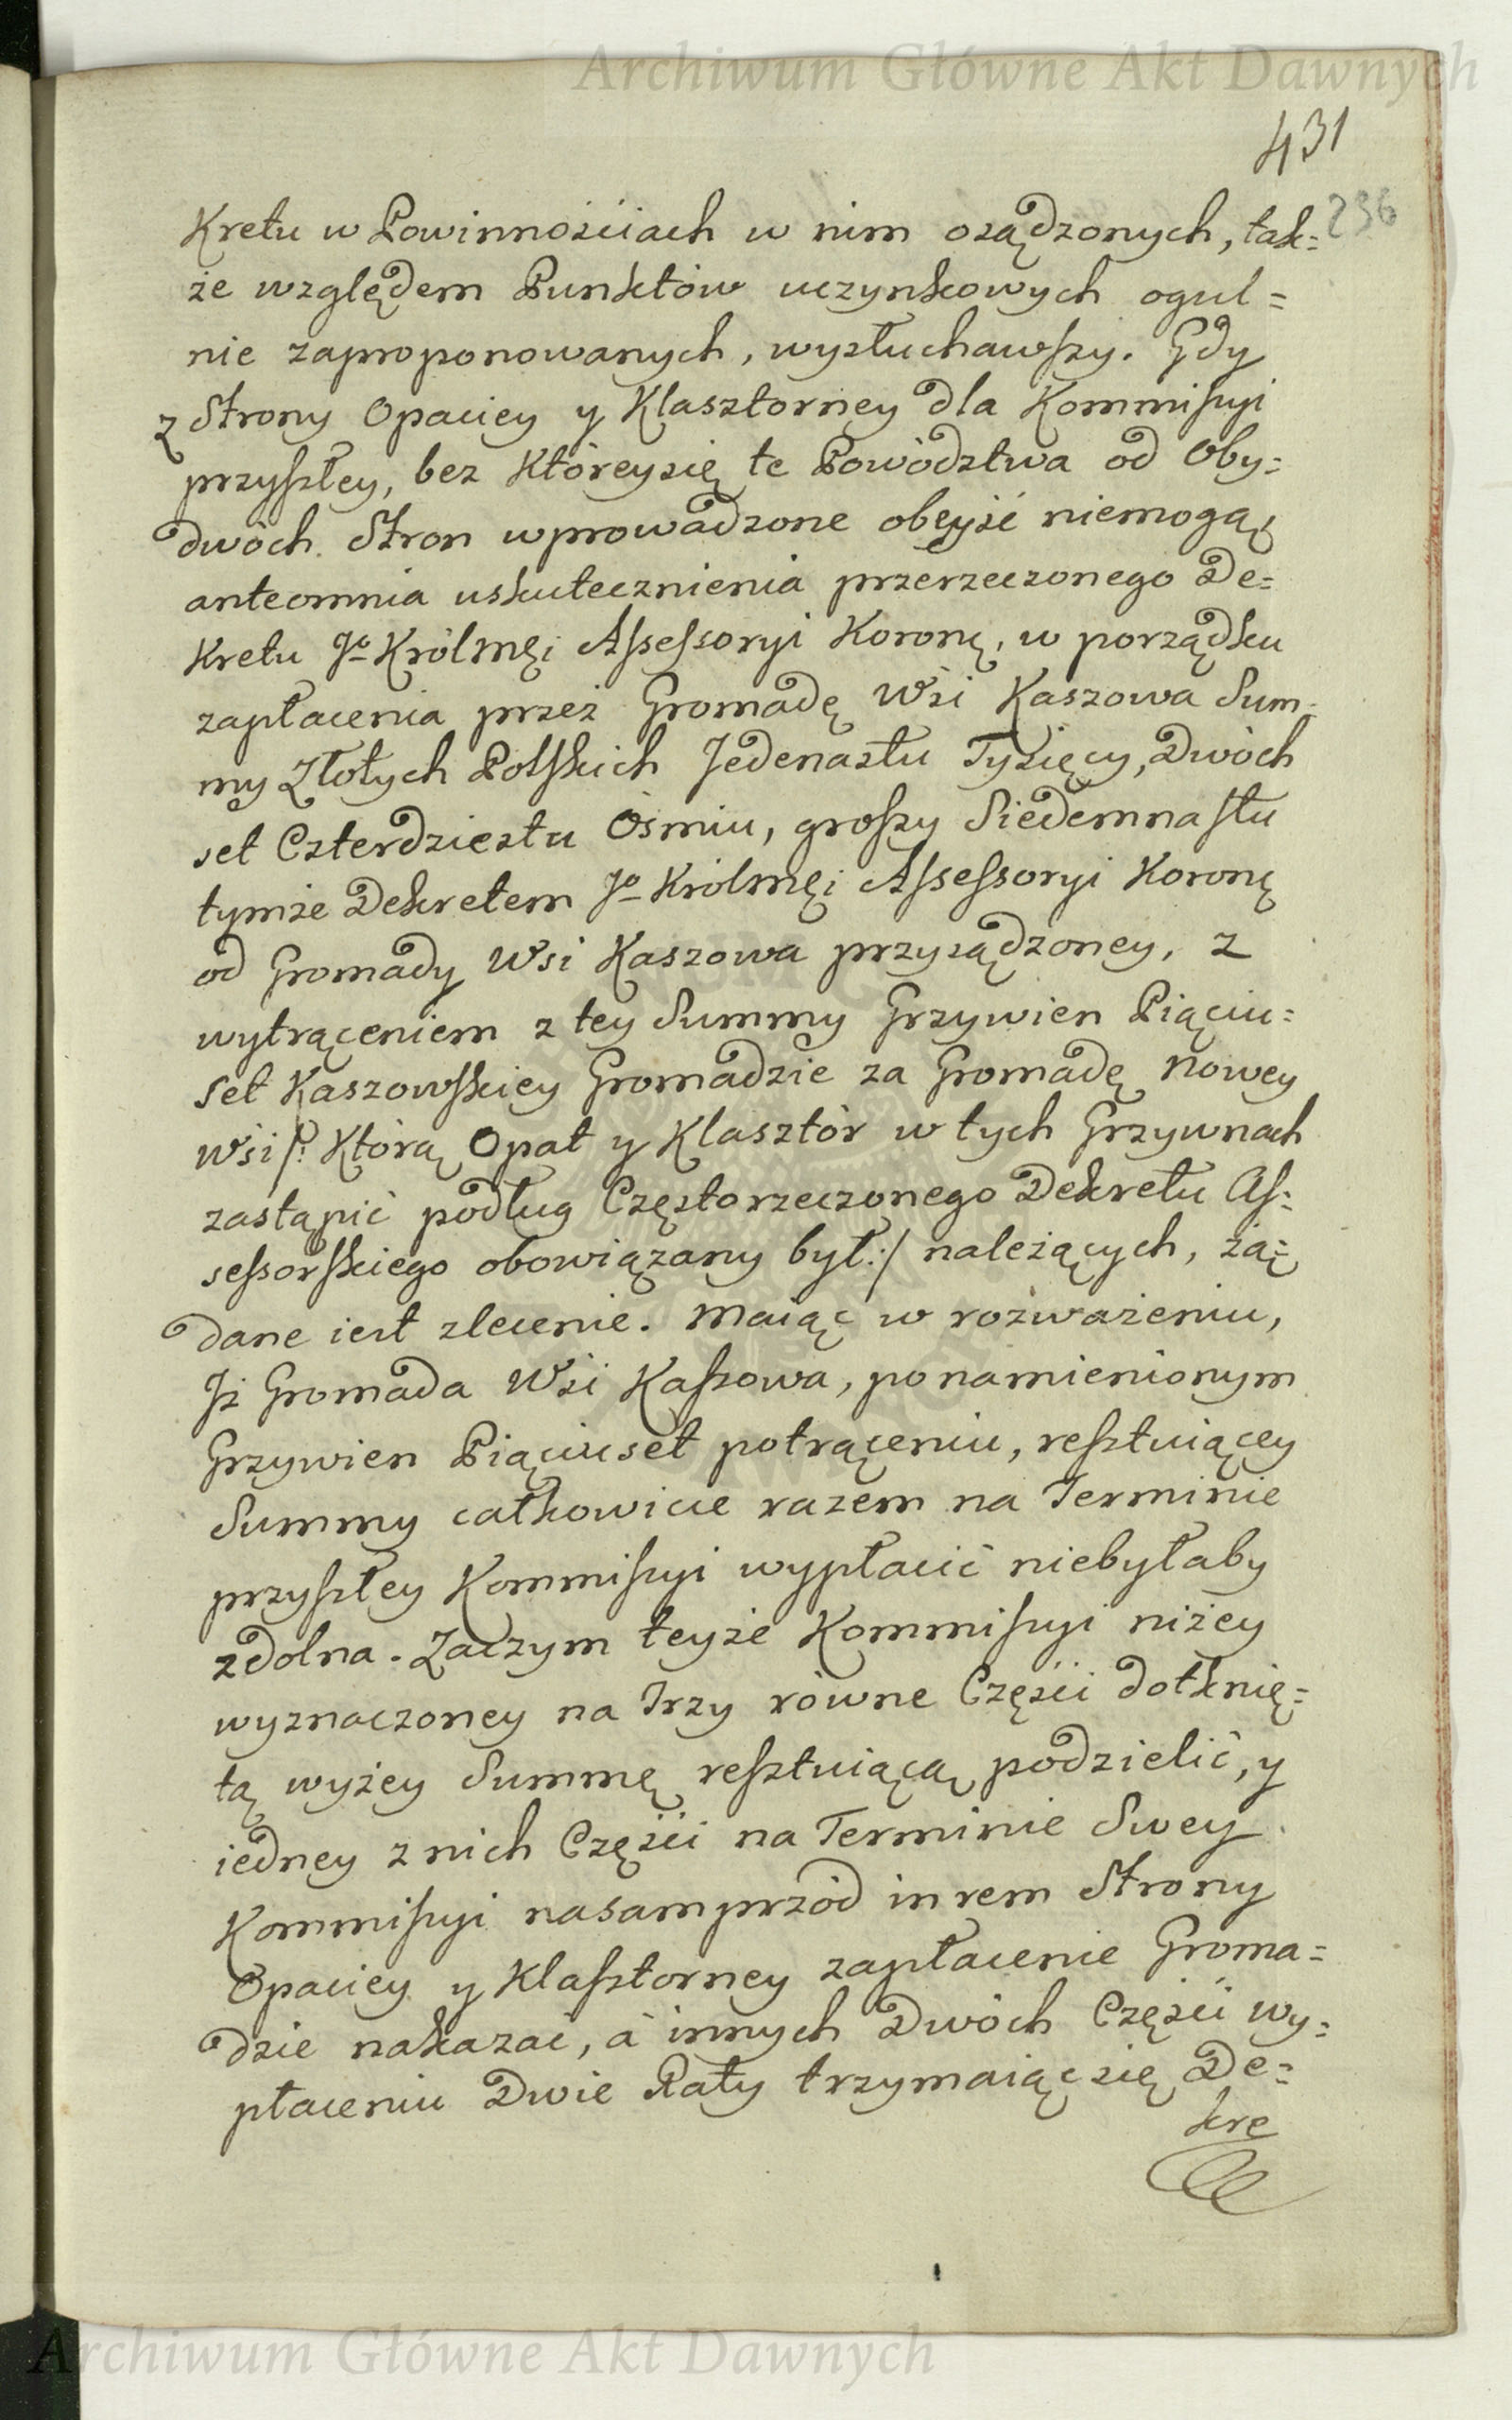 Archiwum Główne Akt Dawnych
431
236
Kretu w Powinnościach w nim osądzonych, tak=
że względem Punktów uczynkowych ogul=
nie zaproponowanych, wysłuchawszy. Gdy
z Strony Opaciey y Klasztorney dla Kommissyi
przyszłey, bez Któreysię te Powództwa od Oby=
dwóch Stron wprowadzone obeyść niemogą,
anteomnia uskutecznienia przerzeczonego De=
Kretu Jo Królmęi Assessoryi Koronę, w porządku
zapłacenia przez Gromadę Wsi Kaszowa Sum=
my Złotych Polskich Jedenastu Tysięcy, Dwóch
set Czterdziestu Ośmiu, groszy Siedemnastu
tymże Dekretem Jo Królmęi Assessoryi Koronę
od Gromady Wsi Kaszowa przysądzoney, z
wytrąceniem z tey Summy Grzywien Piąciu=
set Kaszowskiey Gromadzie za Gromadę Nowey
Wsi /: Którą Opat y Klasztór w tych Grzywnach
zastąpić podług Częstorzeczonego Dekretu As=
sessorskiego obowiązany był :/ należących, żą=
dane iest zlecenie. Maiąc w rozważeniu,
Jż Gromada Wsi Kaszowa, po namienionym
Grzywien Piąciuset potrąceniu, resztuiącey
Summy całkowicie razem na Terminie
przyszłey Kommissyi wypłacić niebyłaby
zdolna. Zaczym teyże Kommissyi niżey
wyznaczoney na Trzy równe Części dotknię=
tą wyżey Summę resztuiącą podzielić, y
iedney z nich Części na Terminie Swey
Kommissyi nasamprzód in rem Strony
Opaciey y Klasztorney zapłacenie Groma=
dzie nakazać, à innych Dwóch Części wy=
płaceniu Dwie Raty trzymaiąc się De=
kre
Archiwum Główne Akt Dawnych